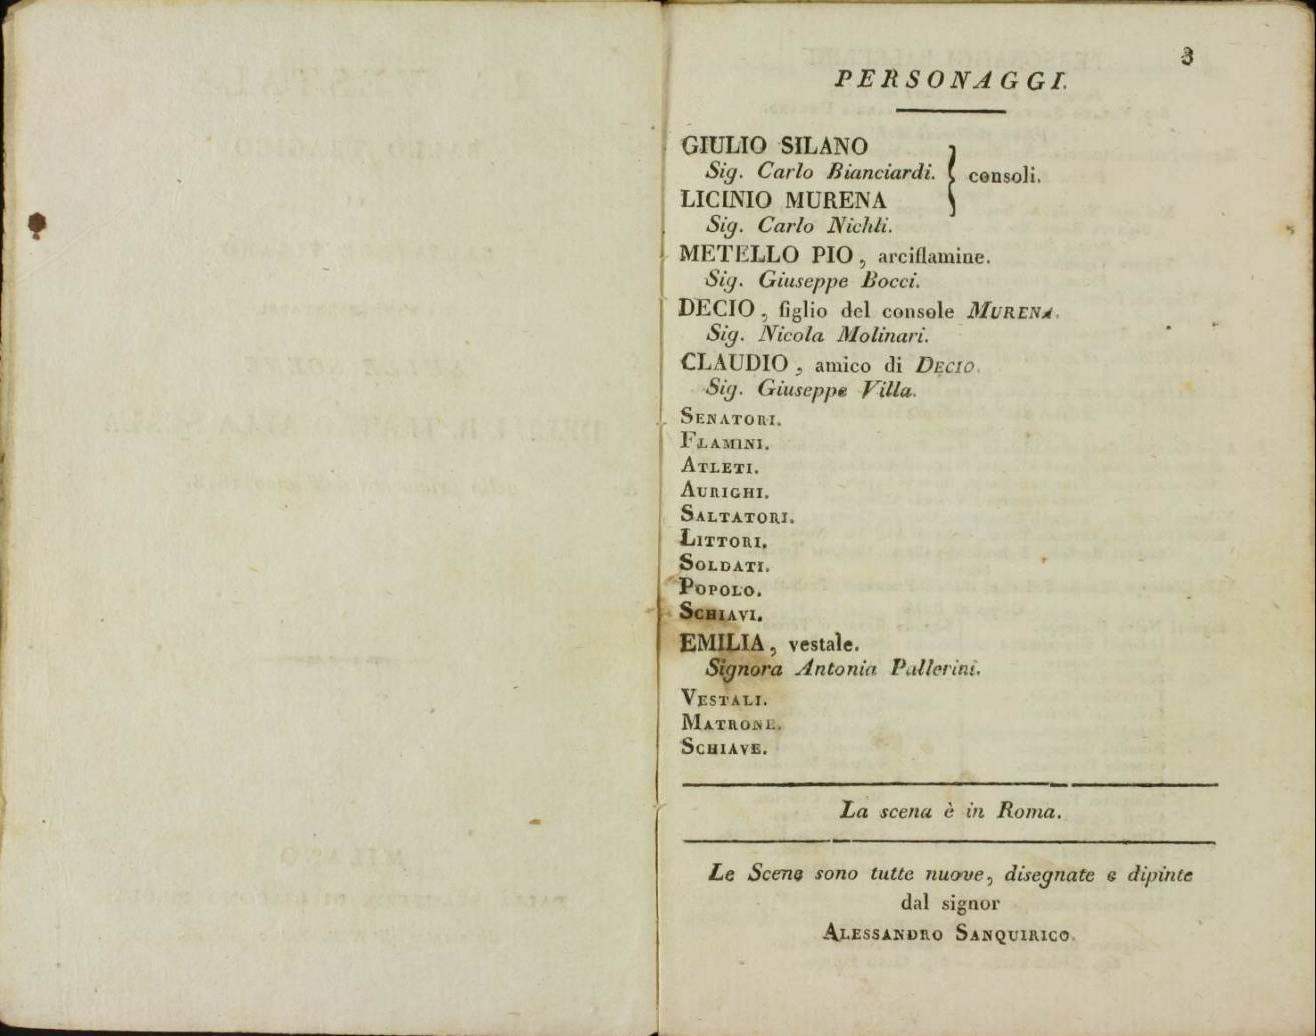 3
PERSONAGGI.
GIULIO SILANO
Sig. Carlo Bianciardi.
} consoli.
LICINIO MURENA
Sig. Carlo Nichli.
METELLO PIO, arciflamine.
Sig. Giuseppe Bocci.
DECIO, figlio del console MURENA.
Sig. Nicola Molinari.
CLAUDIO, amico di DECIO.
Sig. Giuseppe Villa.
SENATORI.
FLAMINI.
ATLETI.
AURIGHI.
SALTATORI.
LITTORI.
SOLDATI.
POPOLO.
SCHIAVI.
EMILIA, vestale.
Signora Antonia Pallerini.
VESTALI.
MATRONE.
SCHIAVE.
La scena è in Roma.
Le Scene sono tutte nuove, disegnate e dipinte
dal signor
ALESSANDRO SANQUIRICO.